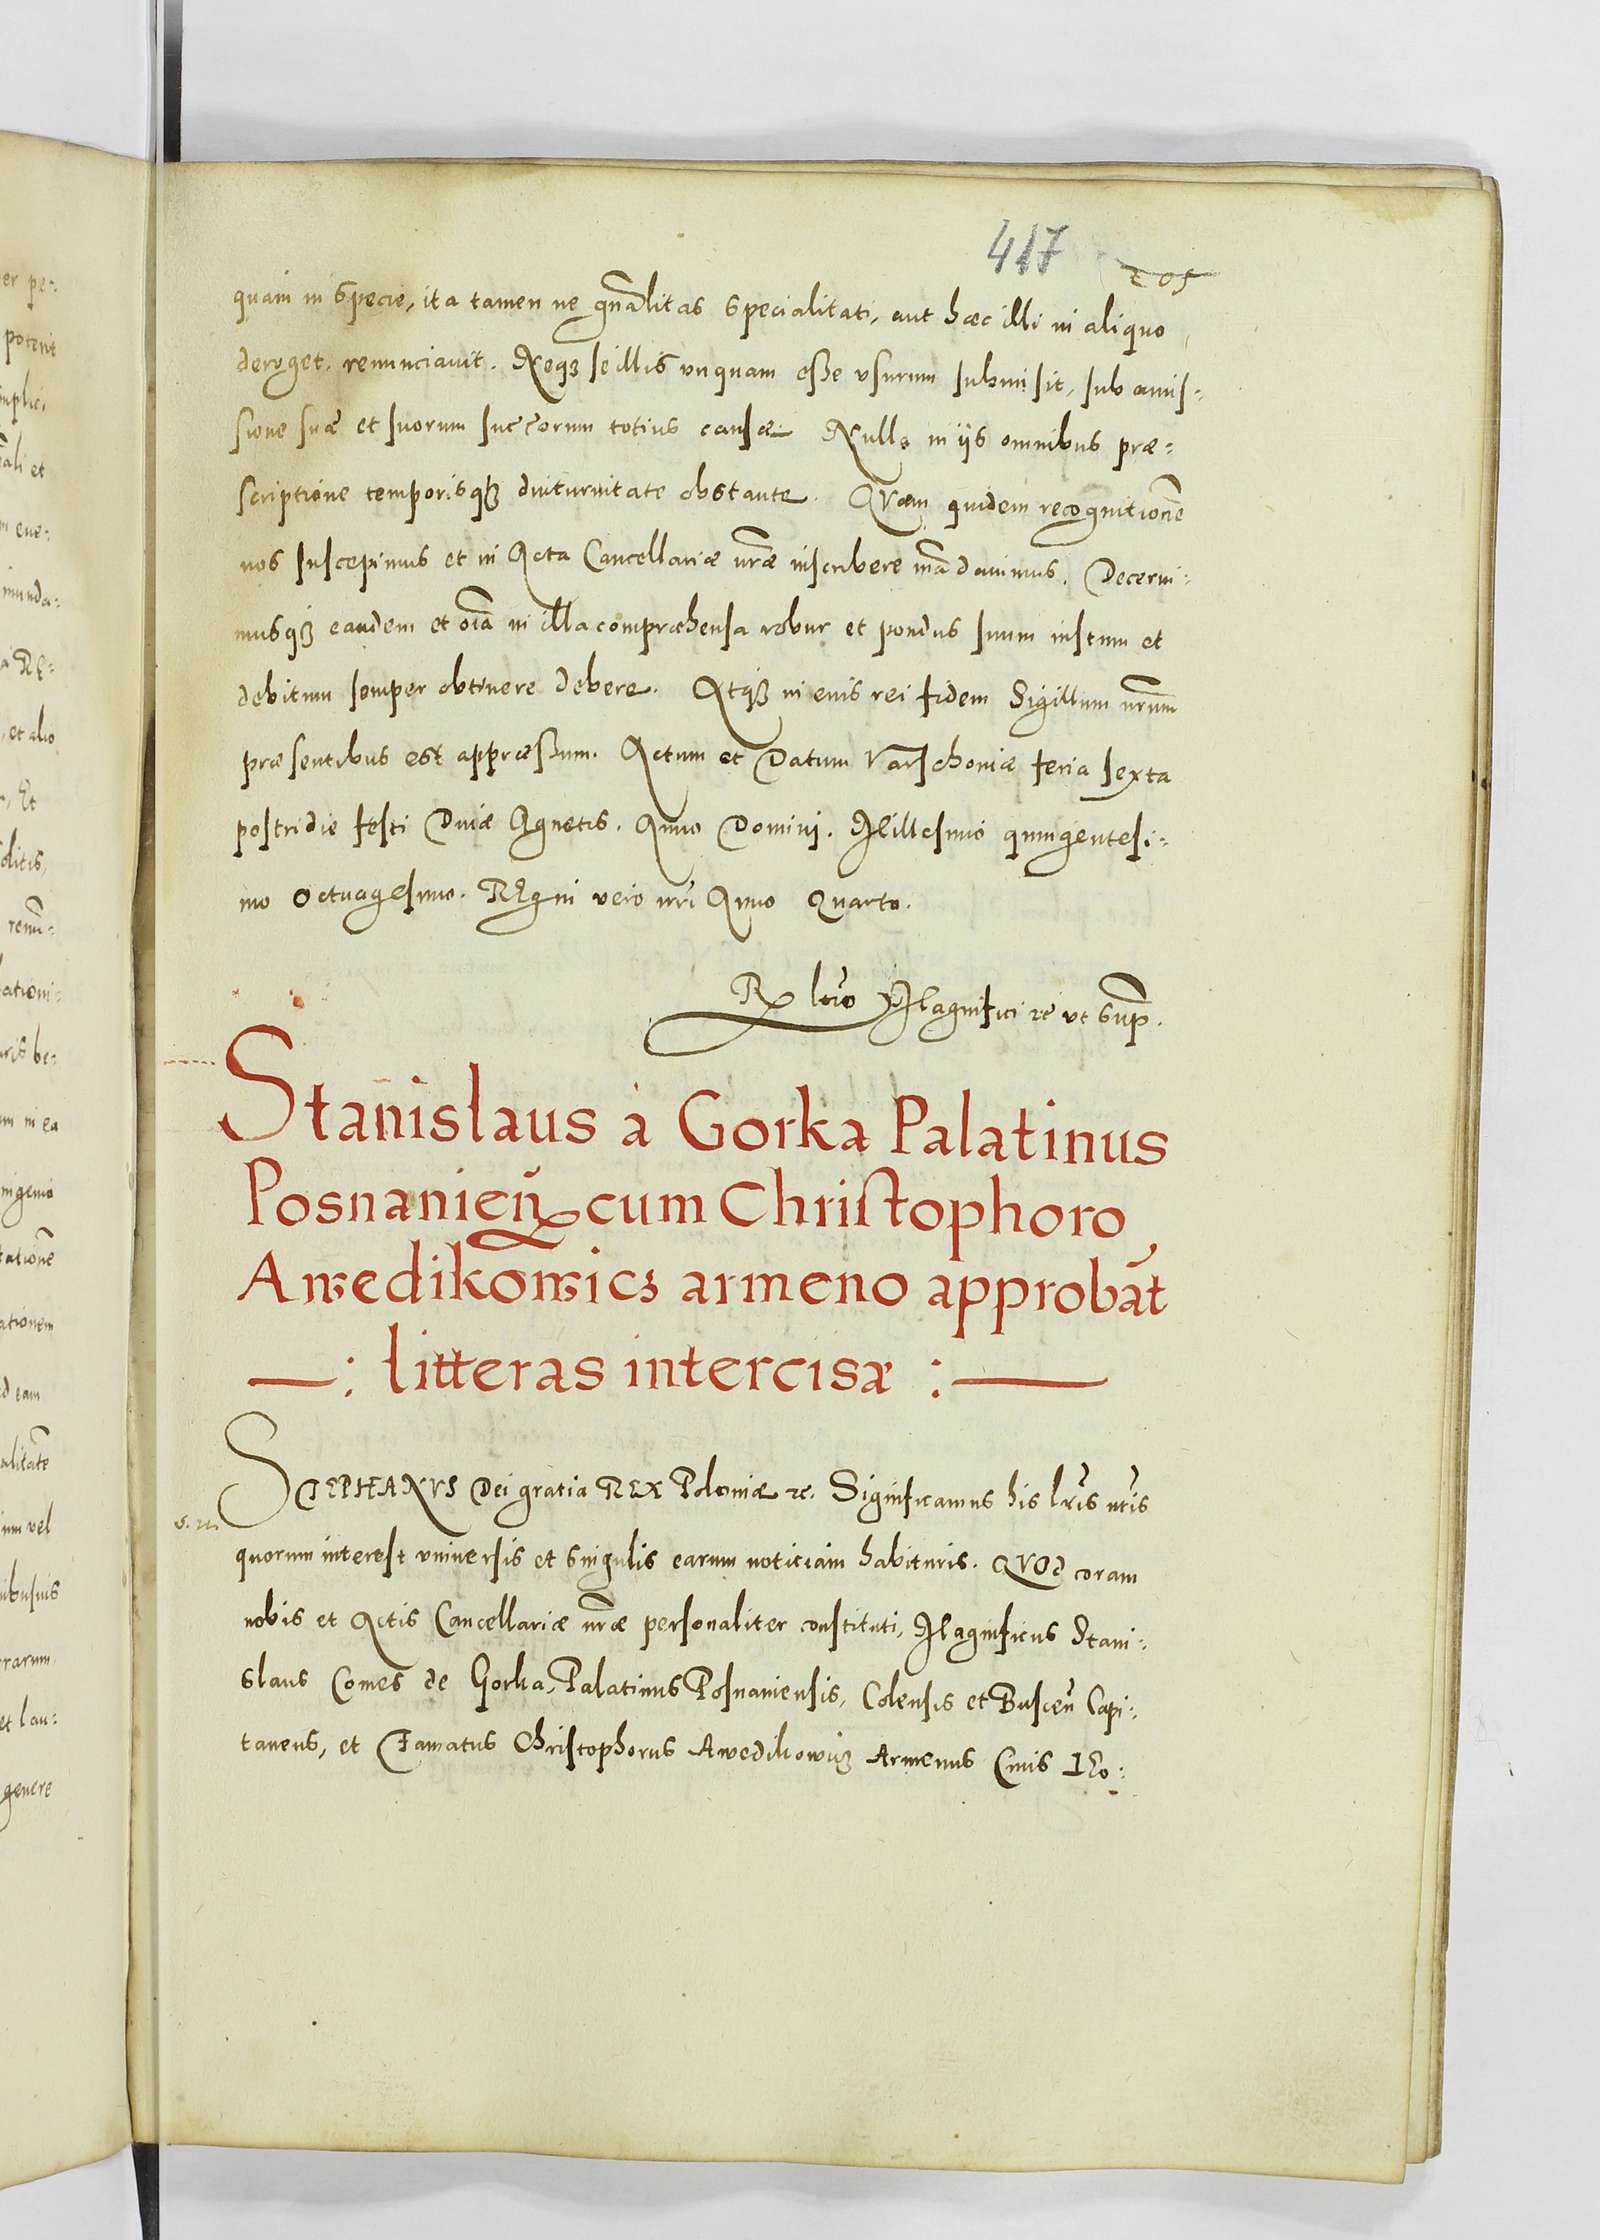 417
205
quam in specie, ita tamen ne gñalitas specialitati, aut hæc illi in aliquo
deroget. renunciavit. Neqȝ se illis vnquam esse vsurum submisit, sub amis:
sione suæ et suorum succorum totius causæ. Nulla in iis omnibus præ:
scriptione temporisqȝ diuturnitate obstante. QVam quidem recognitionē
nos suscepimus et in Acta Cancellariæ nræ inscribere mãdauimus. Decerni:
musqȝ eandem et oĩa in illa compræhensa robur et pondus suum iustum et
debitum semper obtinere debere. Atqȝ in euis rei fidem Sigillum nrũm
præsentibus est appræssum. Actum et Datum Varschoniæ feria sexta
postridie festi Diuæ Agnetis. Anno Domini. Millesimo quingentesi:
mo Octuagesimo. REgni vero nri Anno Quarto.
Rx lcio Magnifici rc ut sup.
Stanislaus a Gorka Palatinus
Posnanien̄ cum Christophoro
Awedikowicȝ armeno approbāt
—: litteras intercisæ :—
STEPHANVS Dei gratia REX Poloniæ rc. Significamus his lris nris
quorum interest vniuersis et singulis earum noticiam habituris. QVOd coram
nobis et Actis Cancellariæ nræ personaliter constituti, Magnificus Stani:
slaus Comes de Gorka, Palatinus Posnaniensis, Colensis et Buscen̄ Capi:
taneus, et Famatus Christophorus Awedikowicȝ Armenus Ciuis Leo: